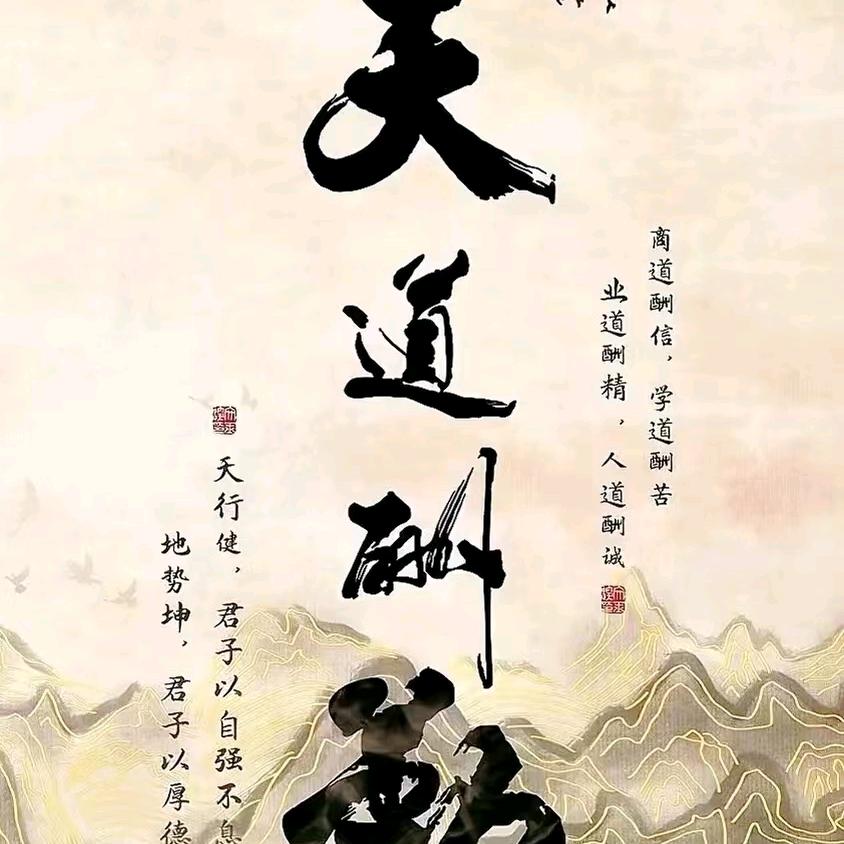 商道酬信，学道酬苦
业道酬精，人道酬诚
天道酬勤
天行健，君子以自强不息
地势坤，君子以厚德